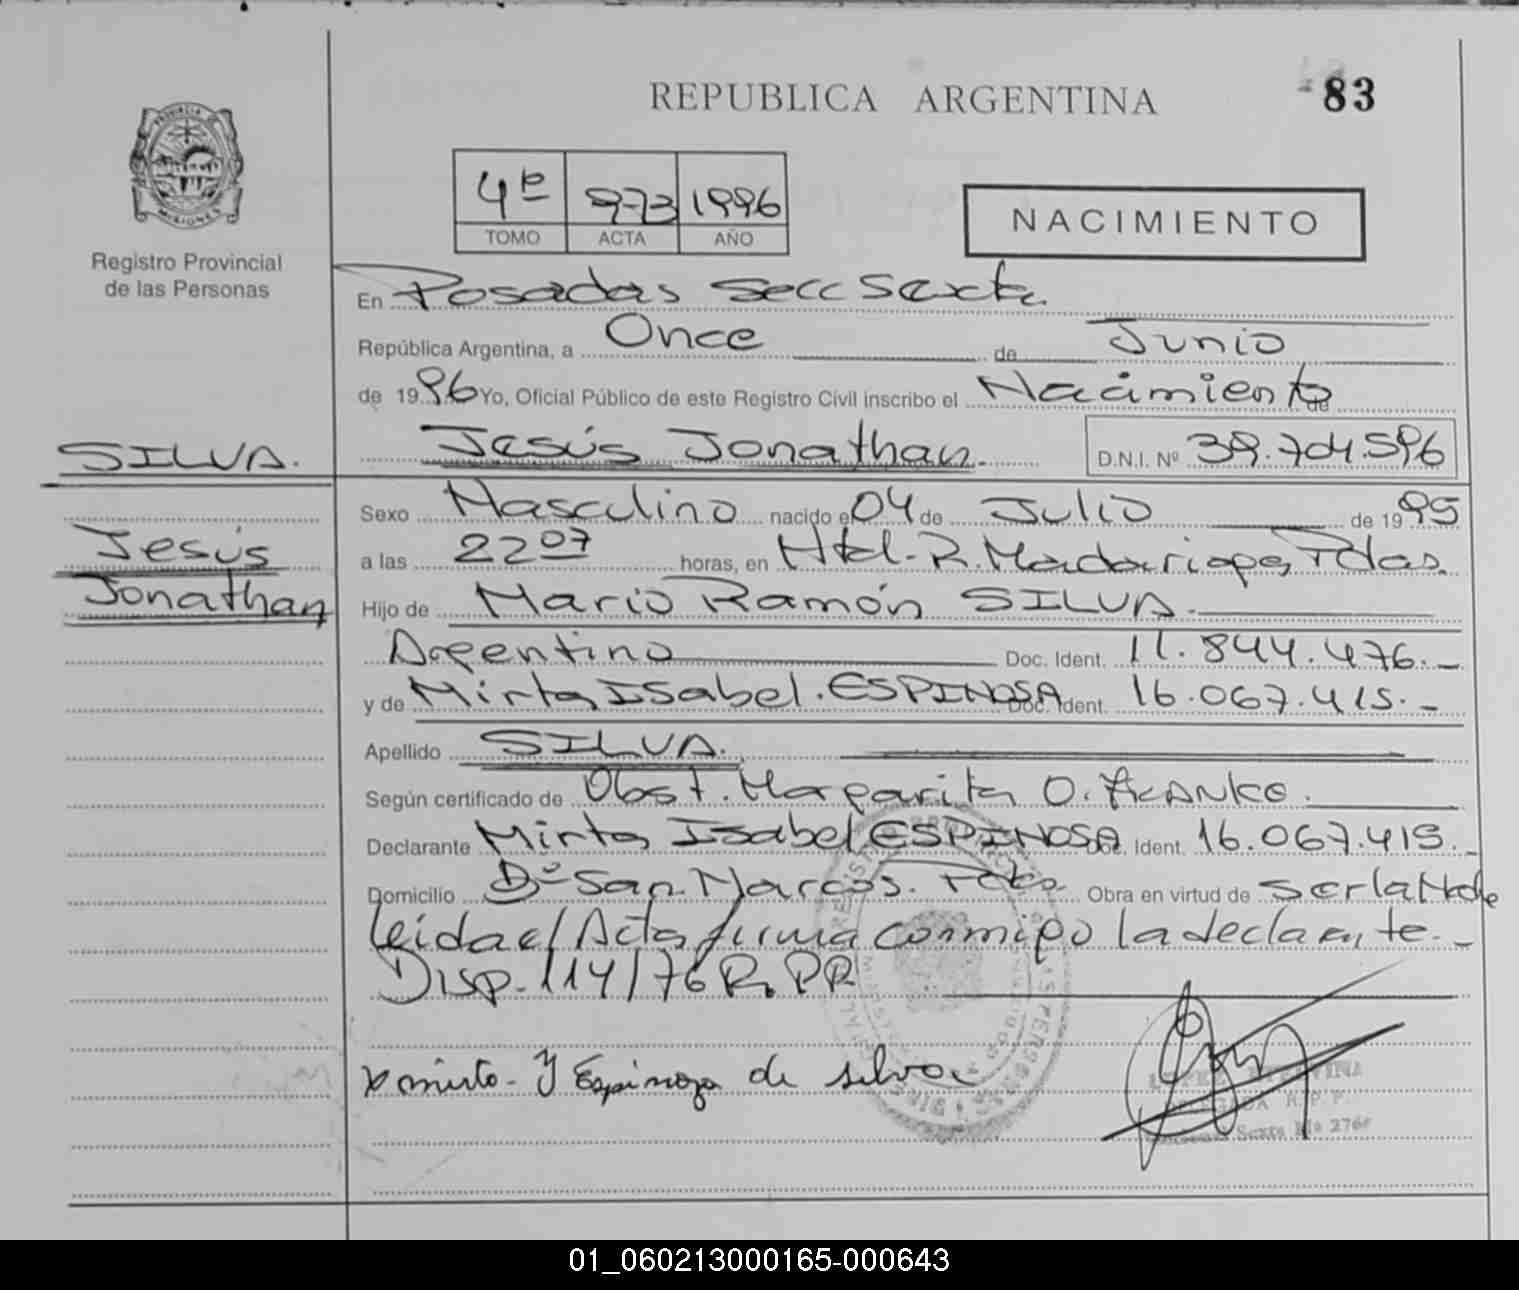 REPUBLICA ARGENTINA
83
PROVINCIA
MISIONES
Registro Provincial
de las Personas
4º 973 1996
TOMO ACTA AÑO
NACIMIENTO
En Posadas Secc Sexta
República Argentina, a Once de Junio
de 1996 Yo, Oficial Público de este Registro Civil inscribo el Nacimiento de
SILVA.
Jesús Jonathan. D.N.I. Nº 39.704.596
Jesús
Jonathan
Sexo Masculino nacido el 04 de Julio de 1995
a las 22 07 horas, en Htal. R. Madariaga, Pdas.
Hijo de Mario Ramón SILVA.
Argentino Doc. Ident. 11.844.476.-
y de Mirta Isabel. ESPINOSA Doc. Ident. 16.067.415.-
Apellido SILVA.
Según certificado de Obst. Margarita O. FRANKO.
Declarante Mirta Isabel ESPINOSA Doc. Ident. 16.067.415.-
Domicilio Bº San Marcos. Pdas Obra en virtud de Ser la Mde
leida el Acta firma conmigo la declarante.-
Disp. 114/76 R.P.P.
x mirta - Y Espinoza de silva
Sexta Nº 276
01_060213000165-000643